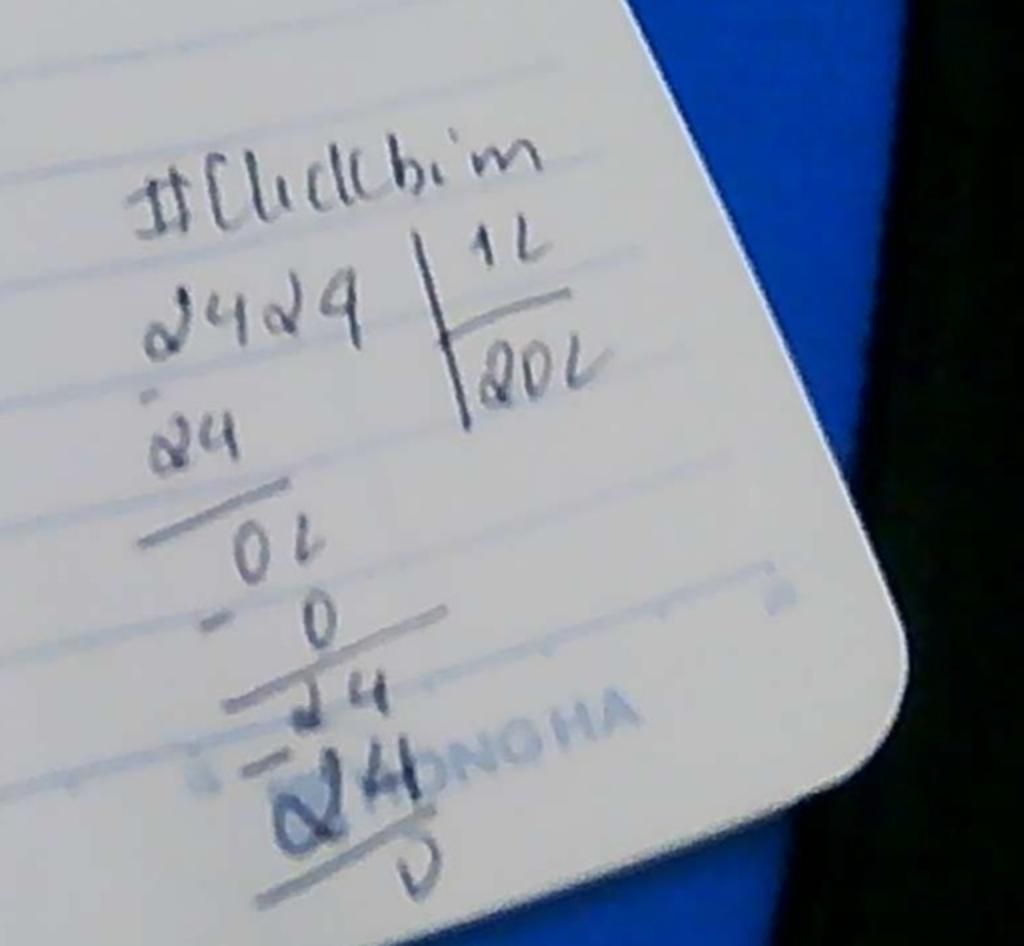 #Clickbim
2424 12
- 24 202
02
- 0
24
- 24
0
KONOHA